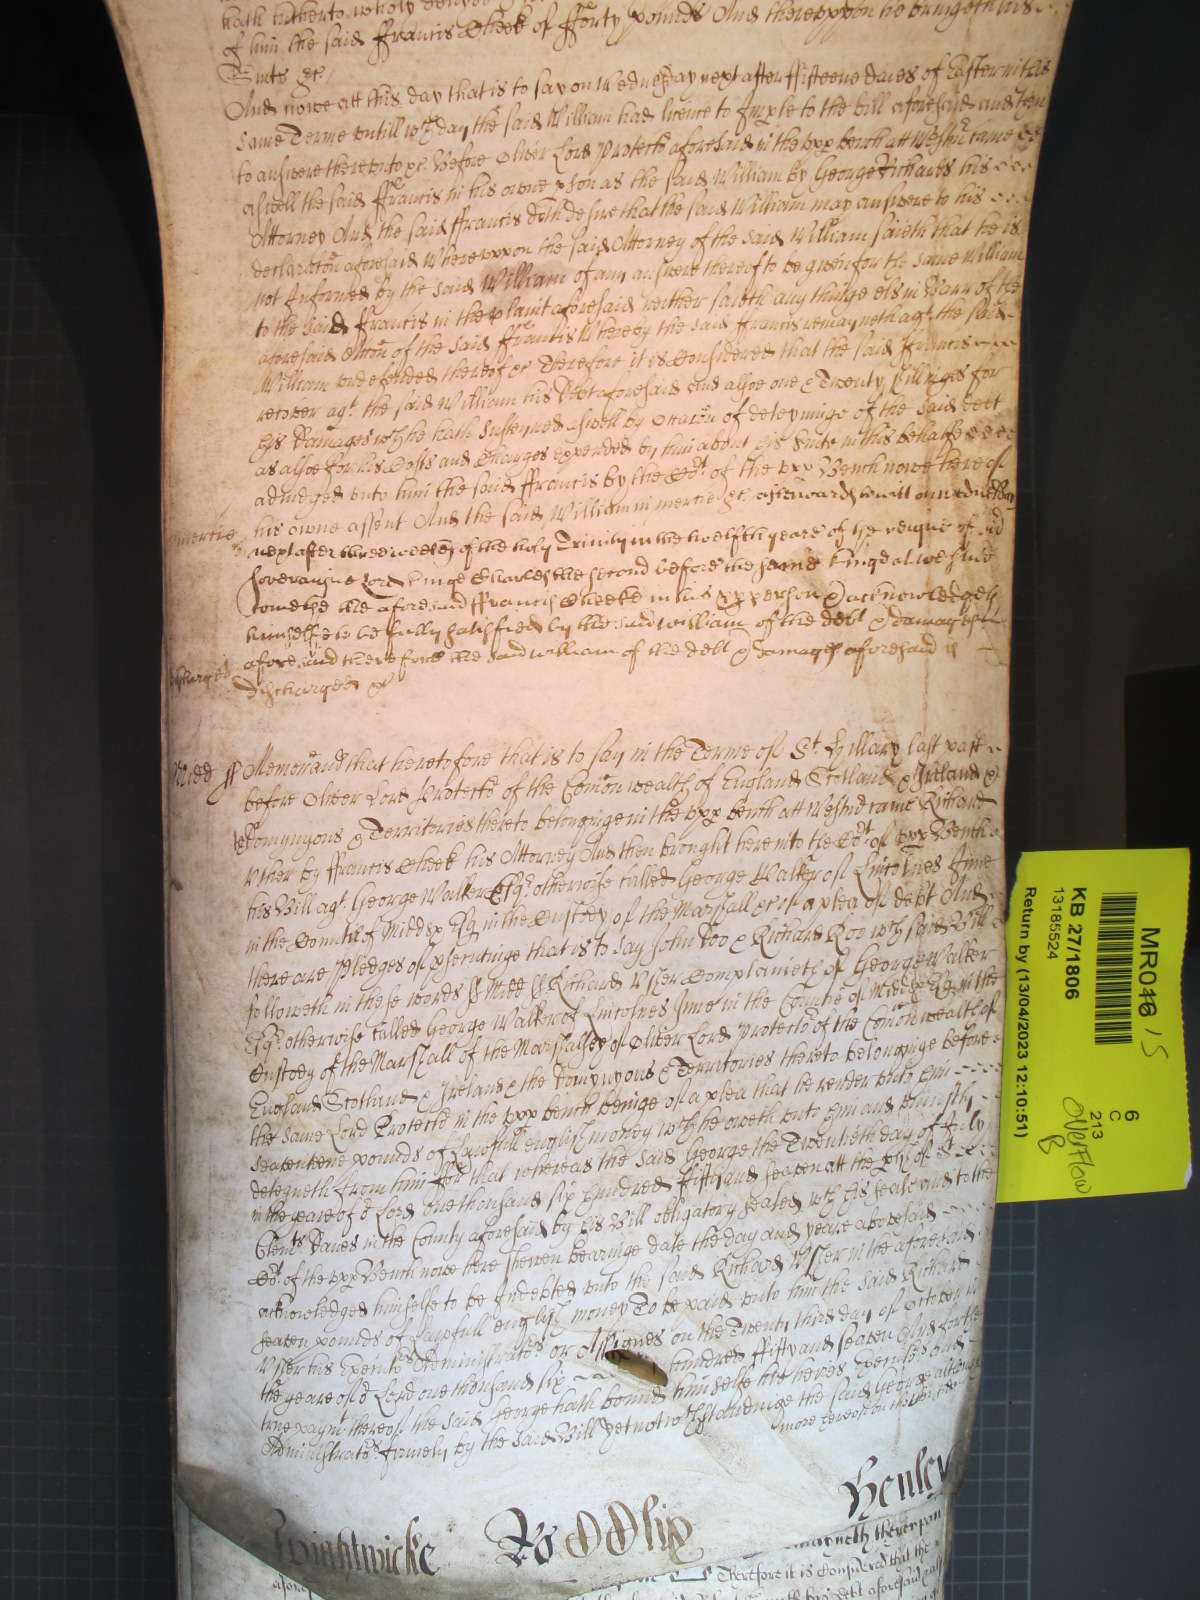 hath hitherto wholy denyed
of him the said Francis Cheek of fforty pounds And thereuppon he bringeth his
Suite &c
And nowe att this day that is to say on Wednesday next after ffifteene daies of Easter in this
same Terme untill wch day the said William had licence to Imple to the bill aforesaid and then
to answere thereunto &c Before Oliver Lord Protector aforesaid in the upp bench att Westmr came
aswell the said ffrancis in his owne pson as the said William by George Richards his
Attorney And the said ffrancis doth desire that the said William may answere to his
declaracon aforesaid Whereuppon the said Attorney of the said William saieth that he is
not Informed by the said William of any answere thereof to be given for the same William
to the said ffrancis in the plaint aforesaid neither saieth any thinge els in Barr of the
aforesaid Accon of the said ffrancis Whereby the said ffrancis remayneth agt the said
William undefended thereof &c Therefore it is Considered that the said ffrancis
recover agt the said William his Debt aforesaid And alsoe one & Twenty shillinges for
his Damages wch he hath susteyned aswell by Occacon of deteyninge of the said debt
as alsoe for his Costs and Charges expended by him about his Suite in this behalfe
adiudged unto him the said ffrancis by the Cort of the upp Bench nowe here of
his owne assent And the said William in mercie &c afterwards to witt on wednesday
mercie
next after three weekes of the holy Trinity in the twelfth yeare of the reigne of
soveraigne Lord Kinge Charles the second before the same King at westmr
cometh the aforesaid ffrancis Cheeke in his pper person & acknowledgeth
himselfe to be fully satisfied by the said william of the debt & damages
aforesaid therefore the said william of the debt & damages aforesaid is
discharged
discharged &c
Midd ss Memorand that heretofore that is to say in the Terme of St. Hillary last past
before Oliver Lord Protector of the Comon wealth of England Scotland & Ireland &
Domynyons & Territories thereto belonginge in the upp bench att Westmr came Richard
Usher by ffrancis Cheek his Attorney And then brought here into the Cort of upp Bench
his Bill agt George Walker Esqr otherwise called George Walker of Lincolnes Inne
in the Countie of Midds Esq in the Custody of the Marshall &c of a plea of debt And
there are Pledges of psecutinge that is to say John Doo & Richard Roo wch said Bill
followeth in these words ss Midd ss Richard Usser Complaineth of George Walker
Esqr otherwise called George Walker of Lincolnes Inne in the Countie of Midds Esq in the
Custody of the Marshall of the Marshalsey of Oliver Lord Protector of the Comon wealth of
England Scotland & Ireland & the Domynyons & Territories thereto belonginge before
the same Lord Protector in the upp bench beinge of a plea that he render unto him
seaventeene pounds of Lawfull english money wch he oweth unto him and uniustly
deteyneth from him ffor that whereas the said George the Twentieth day of July
in the yeare of or Lord one thousand six hundred fifty and seaven att the psh of St
Clemts Danes in the County aforesaid by his Bill obligatory sealed wth his seale and to the
Cort of the upp Bench nowe here shewen bearinge date the day and yeare abovesaid
acknowledged himselfe to be Indebted unto the said Richard Usser in the aforesaid
seaven pounds of Lawfull english money To be paid unto him the said Richard
Usser his Executors Administrators or Assignes on the Twenty third day of October in
the yeare of or Lord one thousand six hundred ffifty and seaven And for the
true paymt thereof the said George hath bound himselfe his heires Executors and
Administrators firmely by the said Bill Yet notwthstandinge the said George although
more thereof on the
Wightwicke Ro OOlip Henley
Therefore it is Considered that the
MR046 / S
KB 27/1806
13185524
Return by (13/04/2023 12:10:51)
6
C
213
Overflow
B